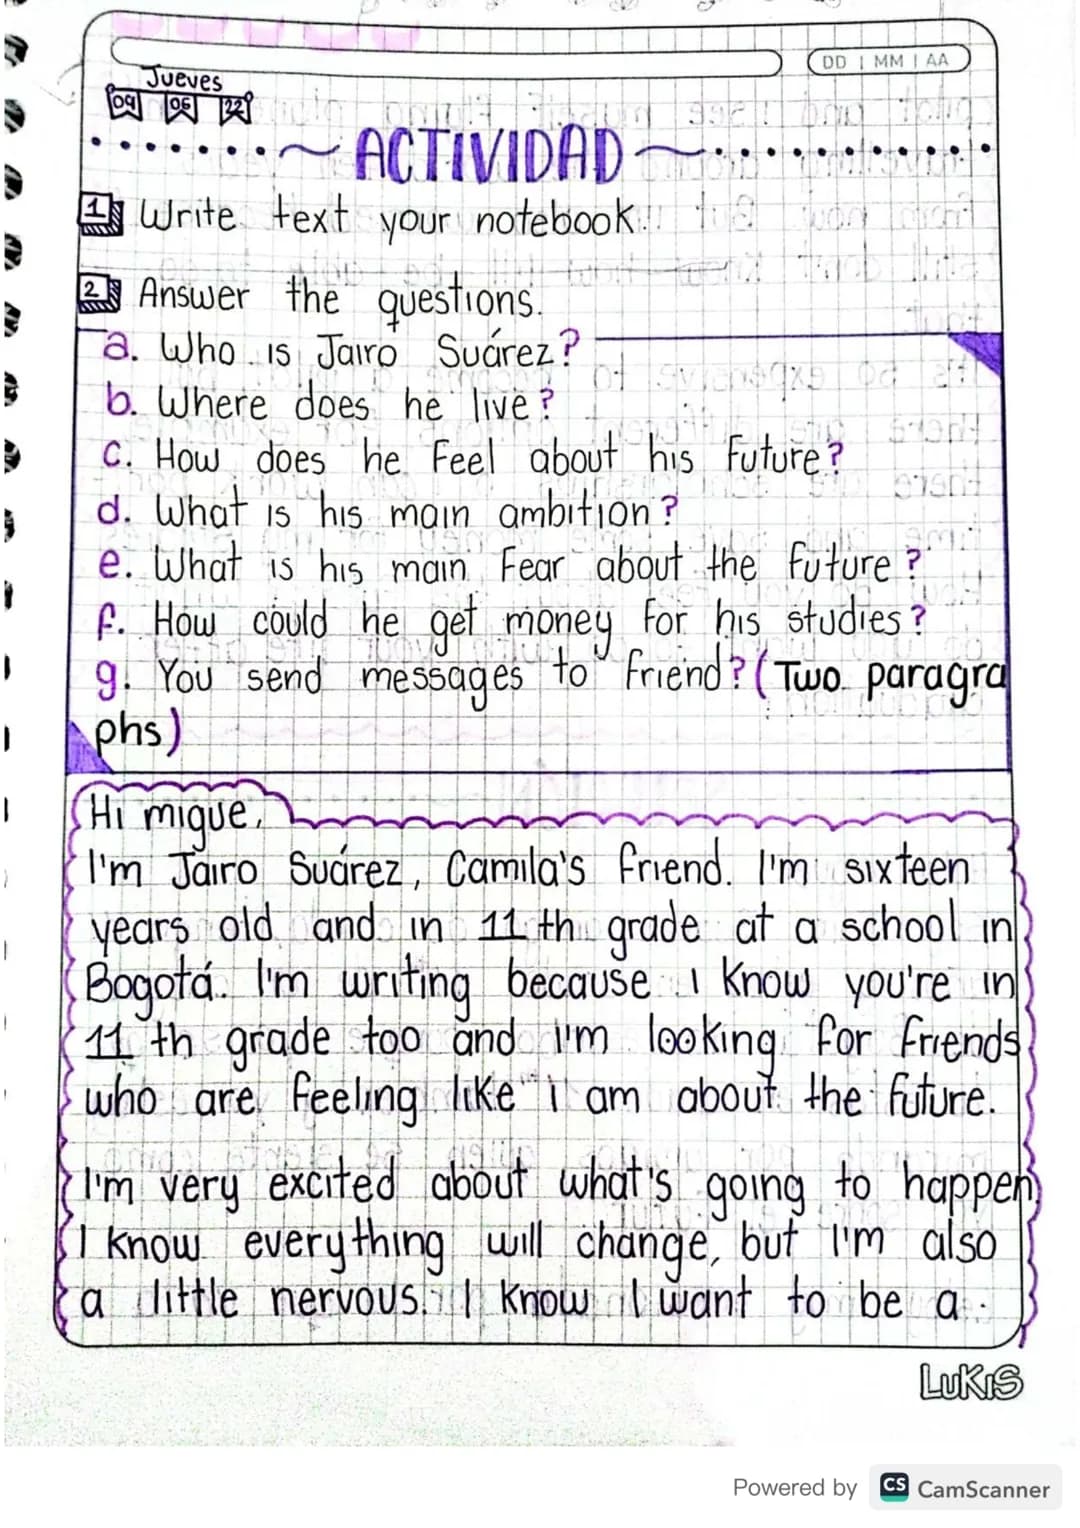 DD | MM | AA
Jueves
09 06 22
ACTIVIDAD
1 Write text your notebook!!
2 Answer the questions.
a. Who is Jairo Suárez?
b. Where does he live?
c. How does he Feel about his Future?
d. What is his main ambition?
e. What is his main Fear about the future?
f. How could he get money For his studies?
g. You send messages to Friend? (Two paragra
phs)
Hi migue,
I'm Jairo Suárez, Camila's friend. I'm sixteen
years old and in 11 th grade at a school in
Bogotá. I'm writing because I Know you're in
11 th grade too and I'm looking for friends
who are feeling like i am about the future.
I'm very excited about what's going to happen,
I know everything will change, but I'm also
a little nervous. I know I want to be a
LUKIS
Powered by CS CamScanner